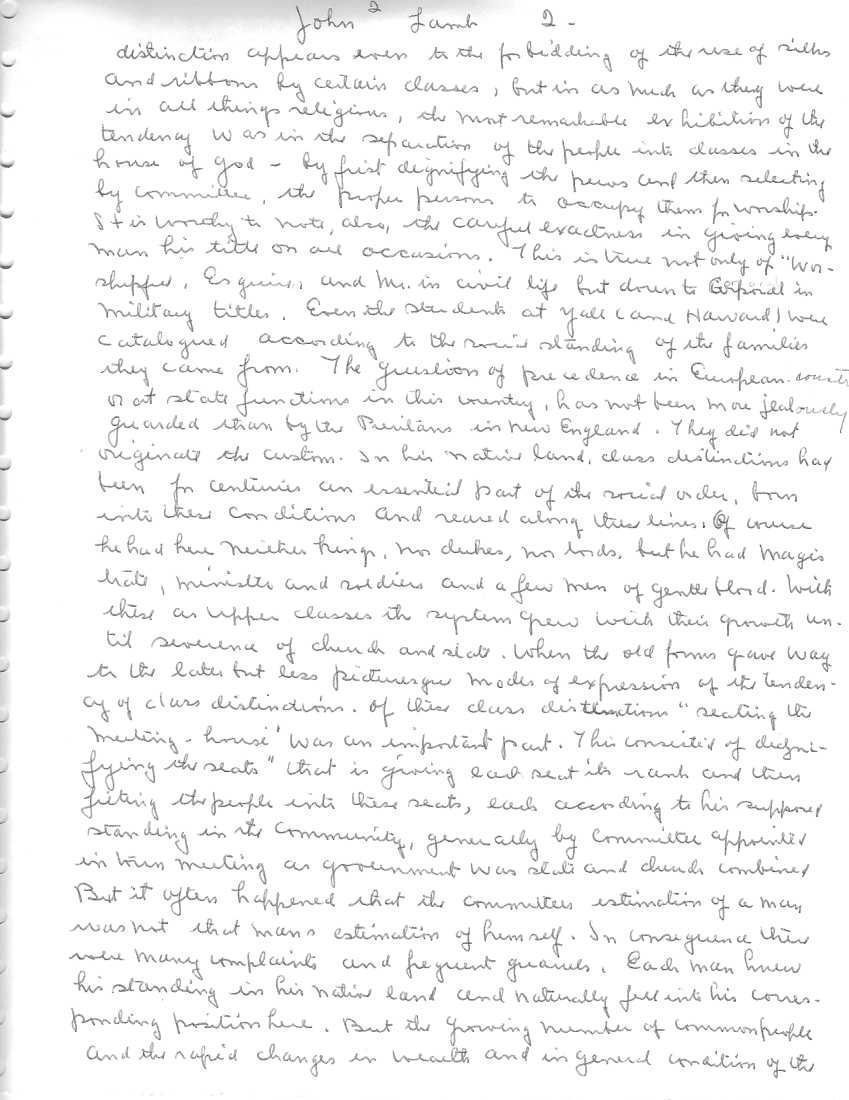 John² Lamb 2 -
distinction appears even to the forbidding of the use of silks
and ribbons by certain classes, but in as much as they were
in all things religious, the most remarkable exhibition of the
tendency was in the separation of the people into classes in the
house of god - by first dignifying the pews and then selecting
by committee, the proper persons to occupy them for worship.
It is worthy to note, also, the careful exactness in giving every
man his title on all occasions. This is true not only of "Wor-
shipful, Esquire, and Mr. in civil life but down to Corporal in
military titles. Even the students at Yale (and Harvard) were
catalogued according to the social standing of the families
they came from. The question of precedence in European courts
or at state functions in this country, has not been more jealously
guarded than by the Puritans in new England. They did not
originate the custom. In his native land, class distinctions had
been for centuries an essential part of the social order, born
into these conditions and reared along these lines. Of course
he had here neither kings, nor dukes, nor lords, but he had Magis
trate, ministers and soldiers and a few men of gentle blood. With
these as upper classes the system grew with their growth un-
til severence of church and state. When the old forms gave way
to the later but less picturesque modes of expression of the tenden-
cy of class distinctions. Of these class distinctions "seating the
meeting-house' was an important part. This consisted of digni-
fying the seats" that is giving each seat its rank and then
fitting the people into these seats, each according to his supposed
standing in the community, generally by committee appointed
in town meeting as government was state and church combined
But it often happened that the committees estimation of a man
was not that mans estimation of himself. In consequence there
were many complaints and frequent quarrels. Each man knew
his standing in his native land and naturally fell into his corres-
ponding position here. But the growing number of common people
and the rapid changes in wealth and in general condition of the